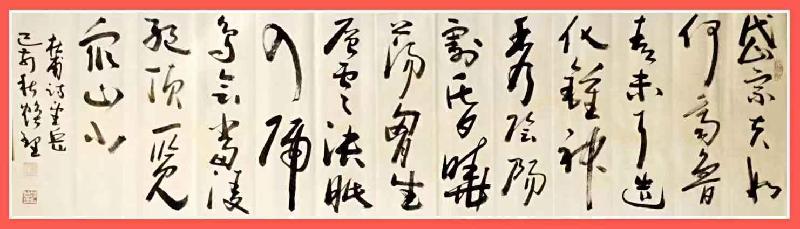 岱宗夫如
何齊魯
青未了造
化鍾神
秀陰陽
割昏曉
蕩胸生
層雲決眦
入歸
鳥會當凌
絕頂一覽
衆山小
杜甫詩望岳
己亥秋